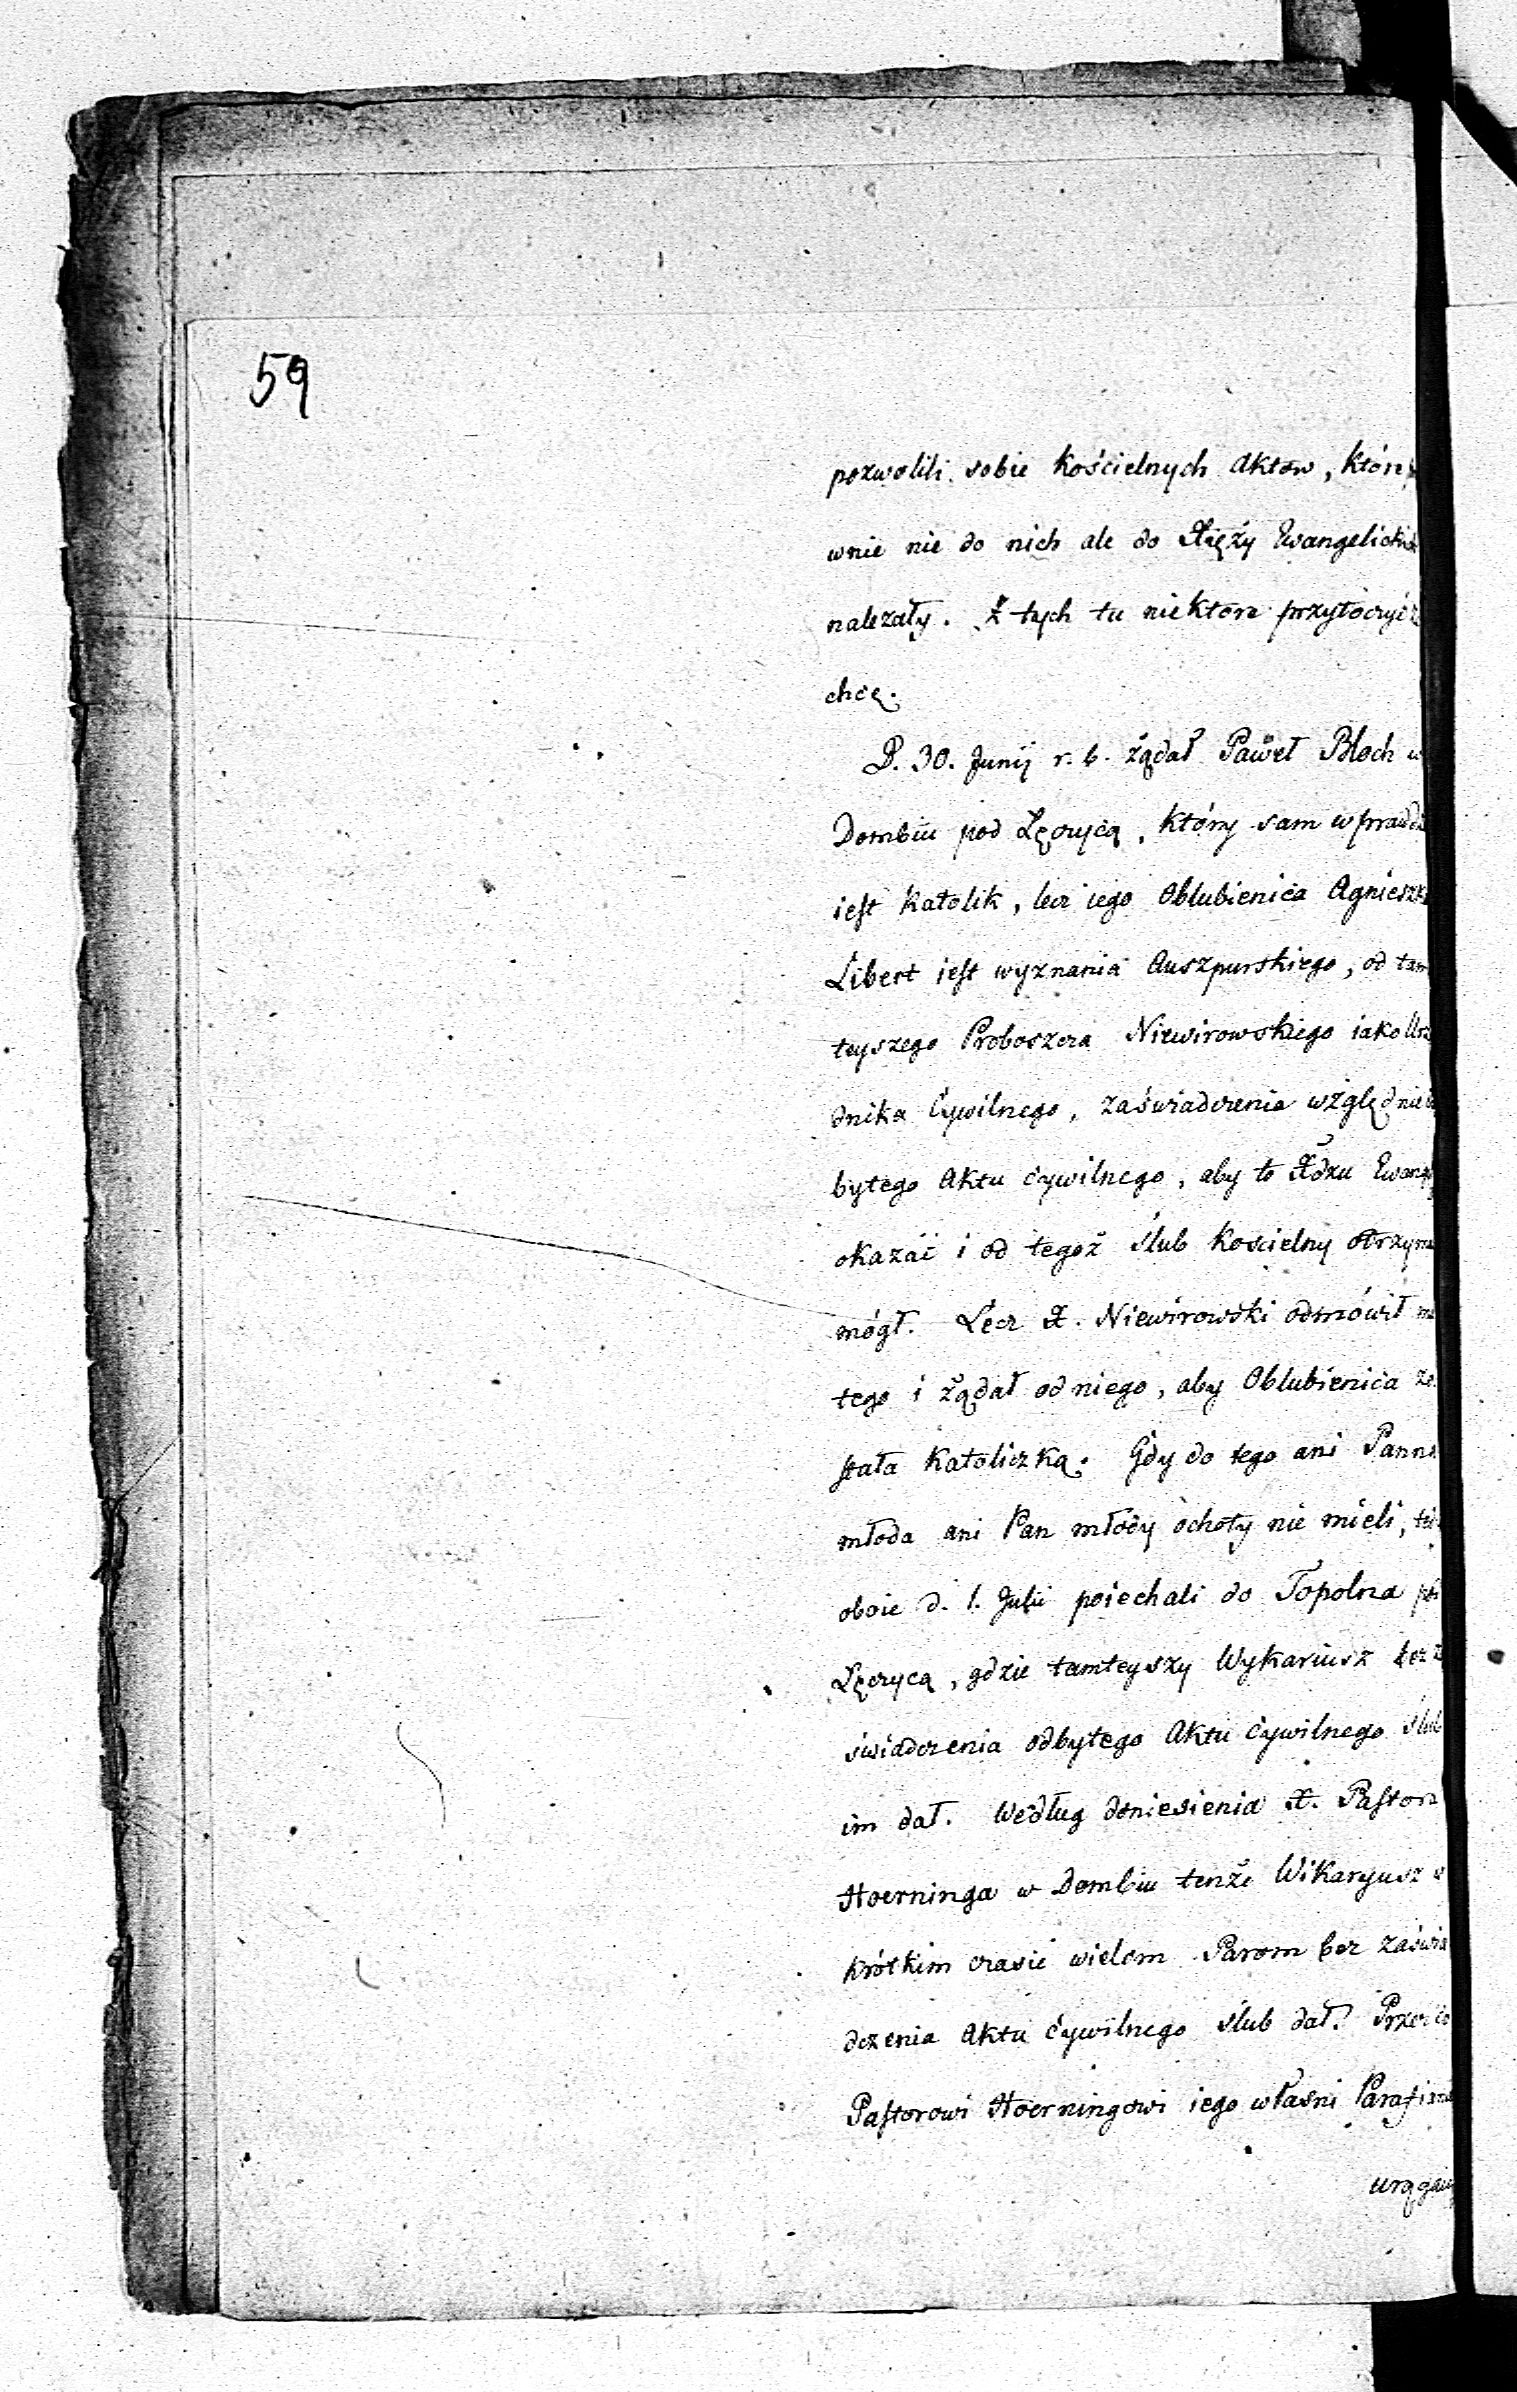 59
pozwolili sobie kościelnych aktow, któr
wnie nie do nich ale do Xięży Ewangelick
nalezały. Z tych tu niektóre przytoczyć
chcę.
D. 30. Junij r. b. żądał Paweł Bloch w
Dombiu pod Łęczycą, który sam wprawd
iest Katolik, lecz iego Oblubienica Agnieszk
Libert iest wyznania Auszpurskiego, od tam
teyszego Proboszcza Niewirowskiego iako Urz
dnika Cywilnego, zaświadczenia względnie
bytego Aktu cywilnego, aby to Xdzu Ewang
okazać i od tegoż ślub Kościelny otrzyma
mógł. Lecz X. Niewirowski odmówił m
tego i żądał od niego, aby Oblubienica zo
stała Katoliczką. Gdy do tego ani Pann
młoda ani Pan młody ochoty nie mieli,
oboie d. 1. Julii poiechali do Topolna
Łęczycą, gdzie tamteyszy Wykariusz bez
świadczenia odbytego Aktu cywilnego ślub
im dał. Według doniesienia X. Pastora
Hoerninga w Dombiu tenże Wikaryusz
krótkim czasie wielom Parom bez zaświa
dczenia Aktu cywilnego ślub dał. Przez co
Pastorowi Hoerningowi iego własni Parafia
urągai